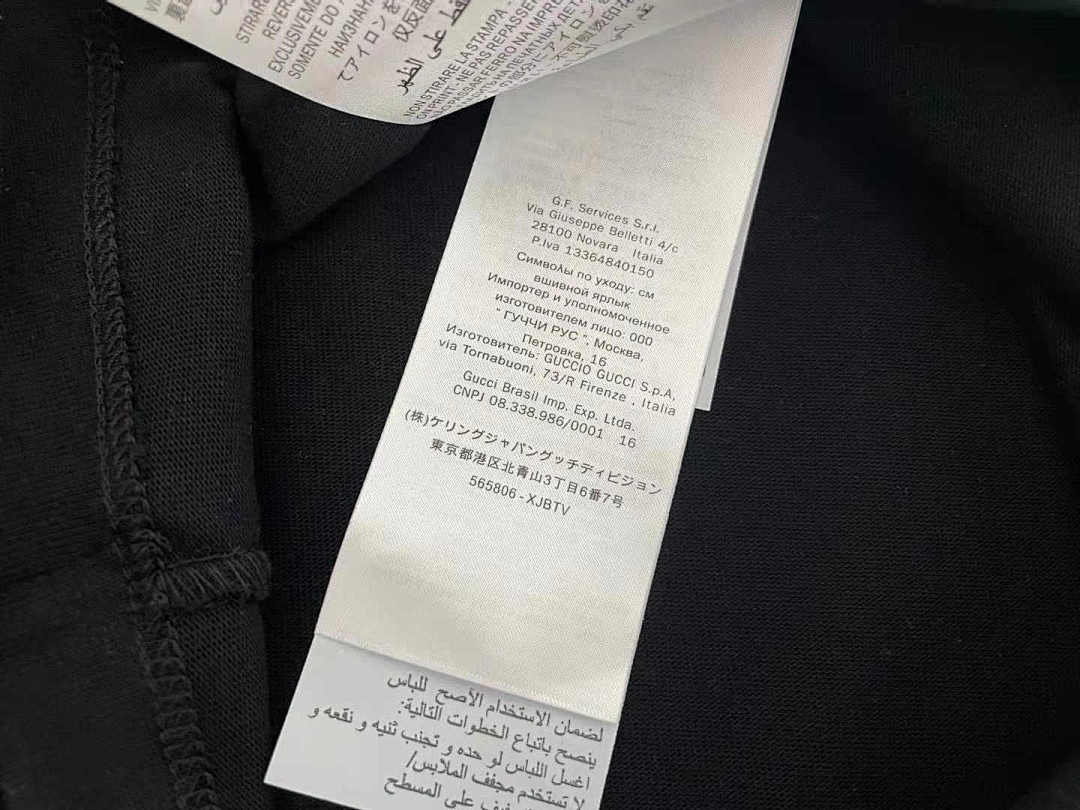 STIRARE
REVER
EXCLUSIVEM
SOMENTE DO
てアイロンを
仅反面
على الظهر
NON STIRARE LA STAMPA -
ON PRINT - NE PAS REPASSE
NÃO PASSAR FERRO NA IMPRE
НА ПЕЧАТНЫХ ДЕТ
G.F. Services S.r.l.
Via Giuseppe Belletti 4/c
28100 Novara Italia
P.Iva 13364840150
Символы по уходу: см
вшивной ярлык
Импортер и уполномоченное
изготовителем лицо: ООО
" ГУЧЧИ РУС ", Москва,
Петровка, 16
Изготовитель: GUCCIO GUCCI S.p.A,
via Tornabuoni, 73/R Firenze , Italia
Gucci Brasil Imp. Exp. Ltda.
CNPJ 08.338.986/0001 16
(株)ケリングジャパングッチディビジョン
東京都港区北青山3丁目6番7号
565806 - XJBTV
لضمان الاستخدام الأصح للباس
ينصح باتباع الخطوات التالية:
اغسل اللباس لو حده و تجنب ثنيه و نقعه و
لا تستخدم مجفف الملابس/
على المسطح